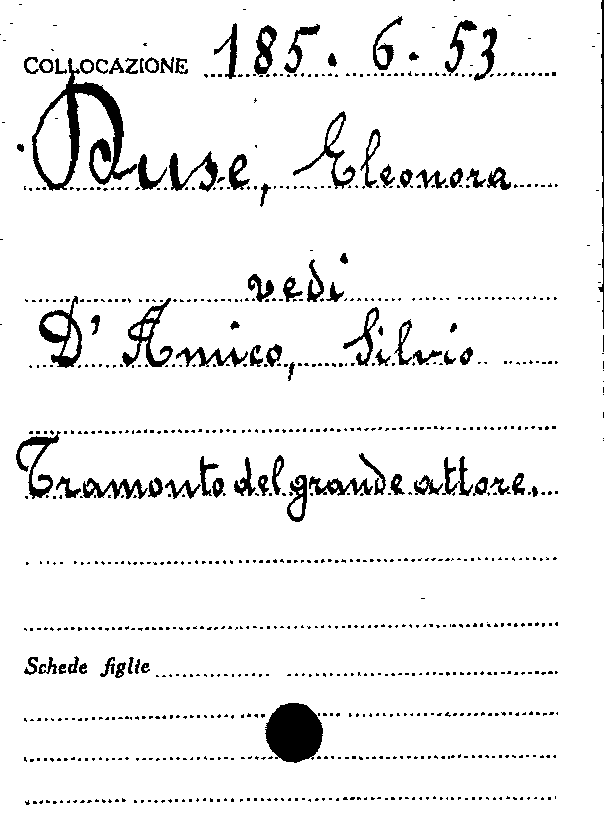 COLLOCAZIONE 185. 6. 53
Duse, Eleonora
vedi
D'Amico, Silvio
Tramonto del grande attore.
Schede figlie